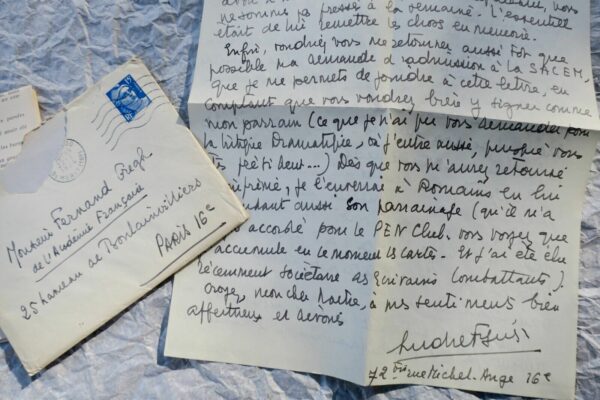 ne sommes pas pressé à la semaine. L'essentiel
était de lui remettre la chose en mémoire.
Enfin, voudriez vous me retourner aussi tôt que
possible ma demande d'admission à la SACEM,
que je me permets de joindre à cette lettre, en
comptant que vous voudrez bien y signer comme
mon parrain (ce que je n'ai pu vous demander pour
la critique Dramatique, où j'entre aussi, puisque vous
Dès que vous m'aurez retourné
je l'enverrai à Romains en lui
demandant aussi son parrainage (qu'il m'a
accordé pour le PEN Club. vous voyez que
j'accumule en ce moment les cartes. Et j'ai été élu
récemment sociétaire des Ecrivains Combattants).
Croyez, mon cher Maître, à mes sentiments bien
affectueux et dévoués
72 bis rue Michel-Ange 16e
Monsieur Fernand Gregh
de l'Académie Française
25 Hameau de Boulainvilliers
PARIS 16e